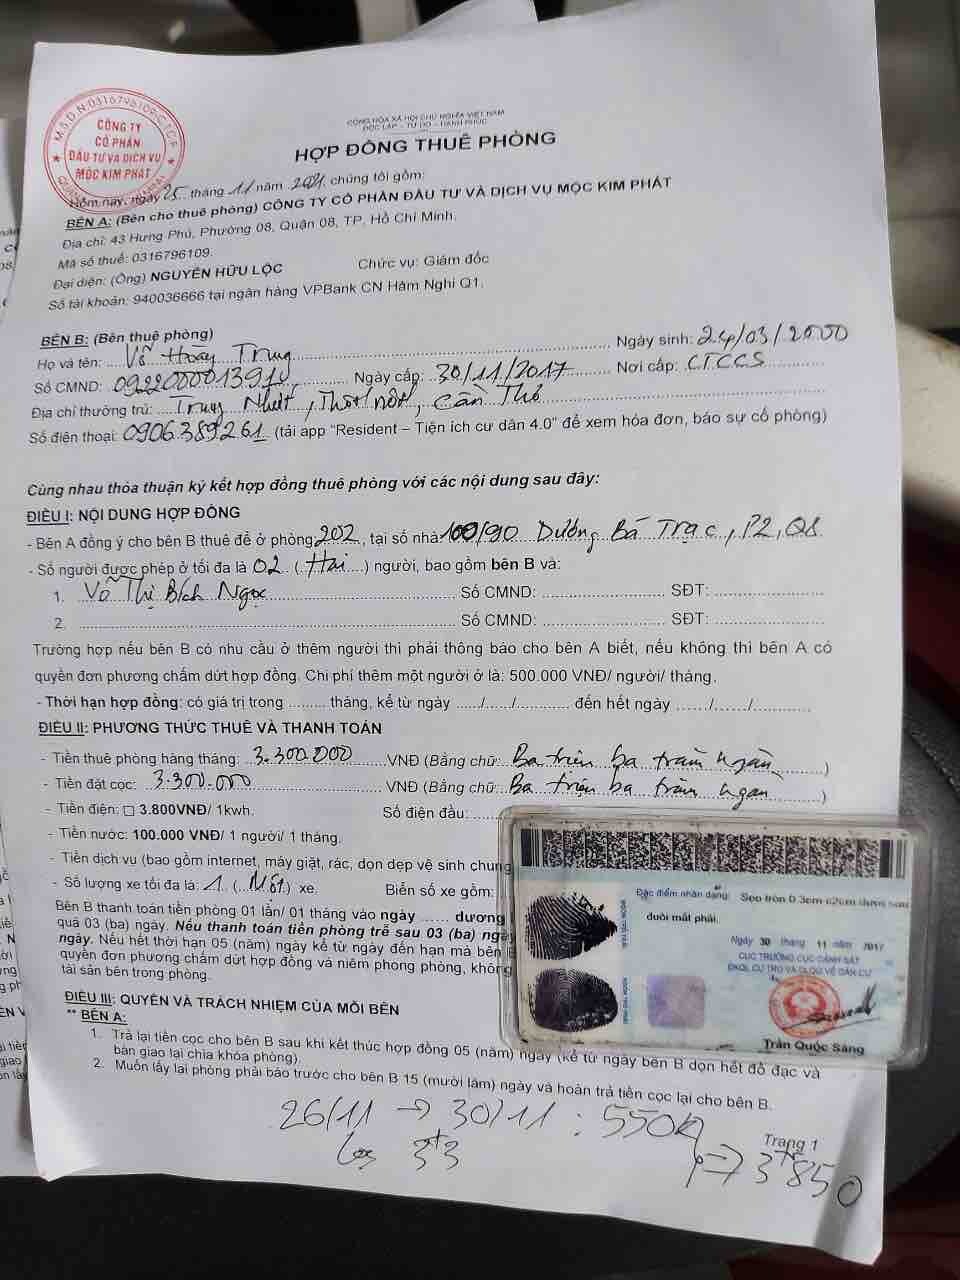 M.S.D.N:0316796109-C.T.C.P
CÔNG TY
CỔ PHẦN
ĐẦU TƯ VÀ DỊCH VỤ
MỘC KIM PHÁT
CỘNG HÒA XÃ HỘI CHỦ NGHĨA VIỆT NAM
ĐỘC LẬP - TỰ DO - HẠNH PHÚC
HỢP ĐỒNG THUÊ PHÒNG
Hôm nay, ngày 25 tháng 11 năm 2021, chúng tôi gồm:
BÊN A: (Bên cho thuê phòng) CÔNG TY CỔ PHẦN ĐẦU TƯ VÀ DỊCH VỤ MỘC KIM PHÁT
Địa chỉ: 43 Hưng Phú, Phường 08, Quận 08, TP. Hồ Chí Minh.
Mã số thuế: 0316796109.
Đại diện: (Ông) NGUYỄN HỮU LỘC Chức vụ: Giám đốc
Số tài khoản: 940036666 tại ngân hàng VPBank CN Hàm Nghi Q1.
BÊN B: (Bên thuê phòng)
Họ và tên: Võ Hoàng Trung Ngày sinh: 24/03/2000
Số CMND: 092200001391 Ngày cấp: 30/11/2017 Nơi cấp: CTCCS
Địa chỉ thường trú: Trung Nhứt, Thốt nốt, Cần Thơ
Số điện thoại: 0906389261 (tải app "Resident – Tiện ích cư dân 4.0" để xem hóa đơn, báo sự cố phòng)
Cùng nhau thỏa thuận ký kết hợp đồng thuê phòng với các nội dung sau đây:
ĐIỀU I: NỘI DUNG HỢP ĐỒNG
- Bên A đồng ý cho bên B thuê để ở phòng 202, tại số nhà 100/90 Dương Bá Trạc, P2, Q8.
- Số người được phép ở tối đa là 02 (Hai) người, bao gồm bên B và:
1. Võ Thị Bích Ngọc Số CMND: SĐT:
2. Số CMND: SĐT:
Trường hợp nếu bên B có nhu cầu ở thêm người thì phải thông báo cho bên A biết, nếu không thì bên A có
quyền đơn phương chấm dứt hợp đồng. Chi phí thêm một người ở là: 500.000 VNĐ/ người/ tháng.
- Thời hạn hợp đồng: có giá trị trong ........ tháng, kể từ ngày ....../....../............ đến hết ngày ....../....../............
ĐIỀU II: PHƯƠNG THỨC THUÊ VÀ THANH TOÁN
- Tiền thuê phòng hàng tháng: 3.300.000 VNĐ (Bằng chữ: Ba triệu ba trăm ngàn)
- Tiền đặt cọc: 3.300.000 VNĐ (Bằng chữ: Ba triệu ba trăm ngàn)
- Tiền điện: □ 3.800VNĐ/ 1kwh. Số điện đầu:
- Tiền nước: 100.000 VNĐ/ 1 người/ 1 tháng.
- Tiền dịch vụ (bao gồm internet, máy giặt, rác, dọn dẹp vệ sinh chung
- Số lượng xe tối đa là: 1 (Một) xe. Biển số xe gồm:
Bên B thanh toán tiền phòng 01 lần/ 01 tháng vào ngày ...... dương
quá 03 (ba) ngày. Nếu thanh toán tiền phòng trễ sau 03 (ba) ngày
ngày. Nếu hết thời hạn 05 (năm) ngày kể từ ngày đến hạn mà bên
quyền đơn phương chấm dứt hợp đồng và niêm phong phòng, không
tài sản bên trong phòng.
Đặc điểm nhận dạng: Sẹo tròn 0.3cm c2cm dưới sau
đuôi mắt phải.
Ngày 30 tháng 11 năm 2017
CỤC TRƯỞNG CỤC CẢNH SÁT
ĐKQL CƯ TRÚ VÀ DLQG VỀ DÂN CƯ
Trần Quốc Sáng
ĐIỀU III: QUYỀN VÀ TRÁCH NHIỆM CỦA MỖI BÊN
** BÊN A:
1. Trả lại tiền cọc cho bên B sau khi kết thúc hợp đồng 05 (năm) ngày (kể từ ngày bên B dọn hết đồ đạc và
bàn giao lại chìa khóa phòng).
2. Muốn lấy lại phòng phải báo trước cho bên B 15 (mười lăm) ngày và hoàn trả tiền cọc lại cho bên B.
26/11 → 30/11 : 550k
Cọc 3tr3
→ 3tr850
Trang 1